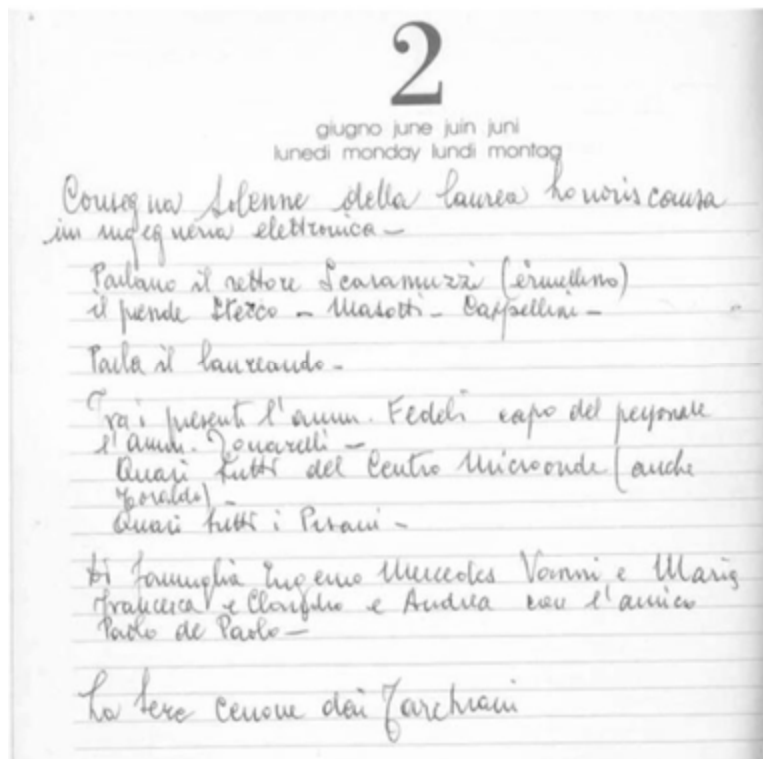 2
giugno june juin juni
lunedì monday lundi montag
Consegna solenne della laurea honoris causa
in ingegneria elettronica -
Parlano il rettore Scaramuzzi (ermellino)
il - Masotti - Cappellini -
Parla il laureando -
Tra i presenti l'amm. Fedeli capo del personale
l'amm. Zonarelli -
Quasi tutti del Centro Microonde (anche
Toraldo) -
Quasi tutti i Pisani -
di famiglia Eugenio Mercedes Vanni e Maria
Francesca e Claudio e Andrea con l'amico
Paolo de Paolo -
La sera cenone dai Tarchiani